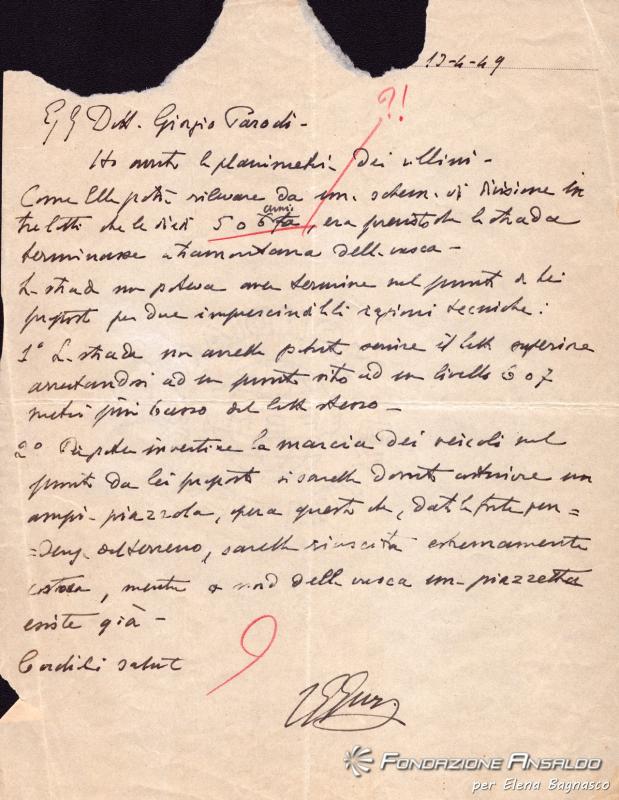 13-4-49
?!
Eg. Dott. Giorgio Parodi -
Ho avuto la planimetria dei
Come Ella potrà rilevare da un schema di divisione in
tre lotti che le diedi 5 o 6 anni fa, era previsto che la strada
terminasse a tramontana della vasca -
La strada non poteva aver termine nel punto da Lei
proposto per due imprescindibili ragioni tecniche:
1° La strada non avrebbe potuto servire il lotto superiore
arrestandosi ad un punto sito ad un livello 6 o 7
metri più basso del lotto stesso -
2° Per poter invertire la marcia dei veicoli nel
punto da Lei proposto si sarebbe dovuto costruire un
ampio piazzola, opera questa che, data la forte pen=
=denza del terreno, sarebbe riuscita estremamente
costosa, mentre a nord della vasca una piazzetta
esiste già -
Cordiali saluti
Fondazione Ansaldo
per Elena Bagnasco